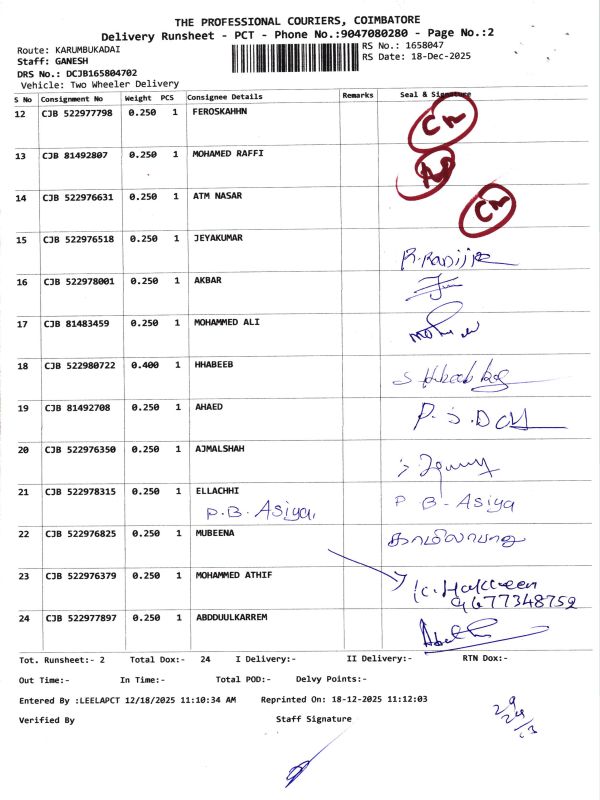 THE PROFESSIONAL COURIERS, COIMBATORE
Delivery Runsheet - PCT - Phone No.:9047080280 - Page No.:2
Route: KARUMBUKADAI RS No.: 1658047
Staff: GANESH RS Date: 18-Dec-2025
DRS No.: DCJB165804702
Vehicle: Two Wheeler Delivery
S No Consignment No Weight PCS Consignee Details Remarks Seal & Signature
12 CJB 522977798 0.250 1 FEROSKAHHN
13 CJB 81492807 0.250 1 MOHAMED RAFFI
14 CJB 522976631 0.250 1 ATM NASAR
15 CJB 522976518 0.250 1 JEYAKUMAR
16 CJB 522978001 0.250 1 AKBAR
17 CJB 81483459 0.250 1 MOHAMMED ALI
18 CJB 522980722 0.400 1 HHABEEB
19 CJB 81492708 0.250 1 AHAED
20 CJB 522976350 0.250 1 AJMALSHAH
21 CJB 522978315 0.250 1 ELLACHHI P B- Asiya
P.B. Asiya.
22 CJB 522976825 0.250 1 MUBEENA
23 CJB 522976379 0.250 1 MOHAMMED ATHIF
9677348752
24 CJB 522977897 0.250 1 ABDDUULKARREM
Tot. Runsheet:- 2 Total Dox:- 24 I Delivery:- II Delivery:- RTN Dox:-
Out Time:- In Time:- Total POD:- Delvy Points:-
Entered By :LEELAPCT 12/18/2025 11:10:34 AM Reprinted On: 18-12-2025 11:12:03
Verified By Staff Signature